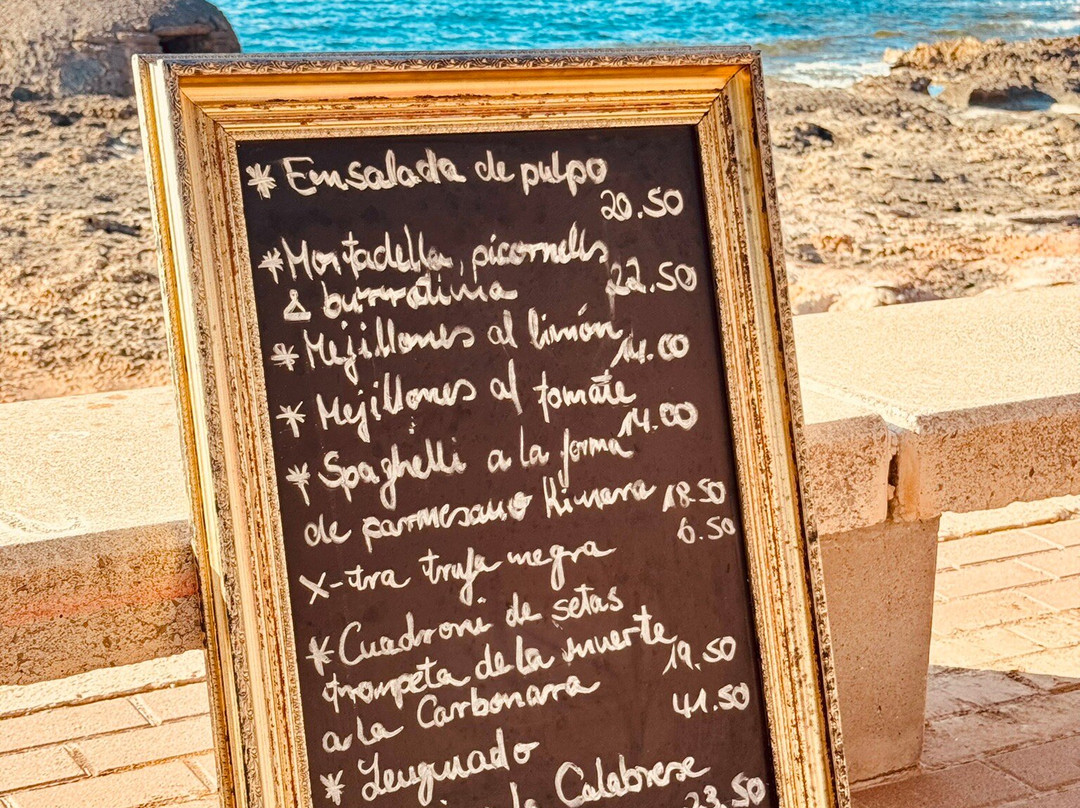 * Ensalada de pulpo
20.50
* Mortadella, picornells
& burratina 22.50
* Mejillones al limón
14.00
* Mejillones al tomate
14.00
* Spaghelli a la forma
de parmesano Kimara 18.50
X-tra trufa negra 6.50
* Cuadroni de setas
trompeta de la muerte
a la Carbonara 19.50
* Lenguado 41.50
Calabrese
23.50